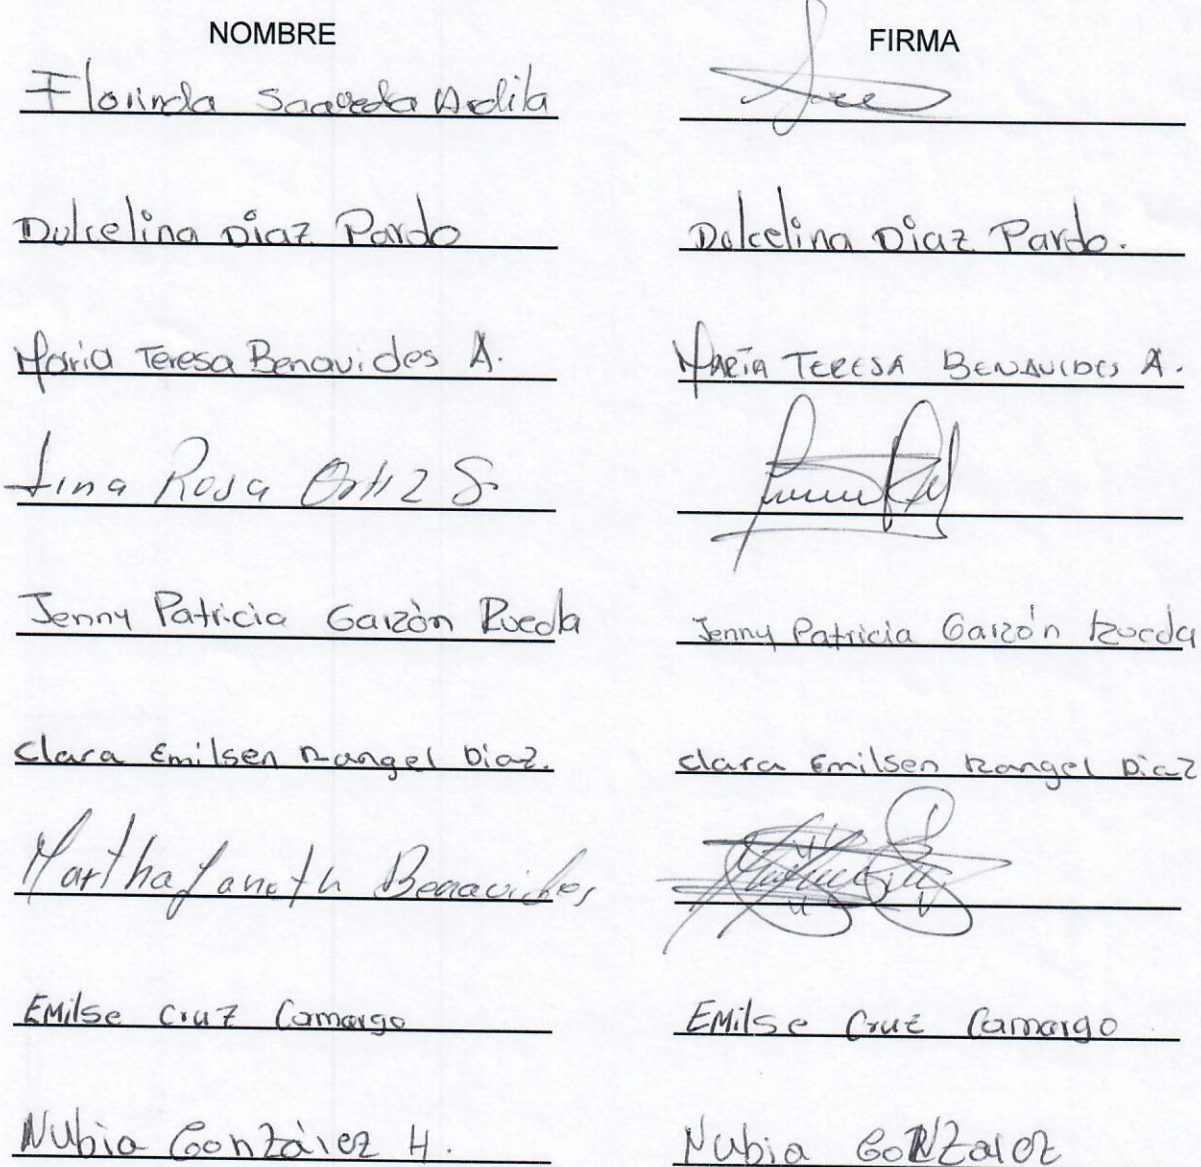 NOMBRE FIRMA
Florinda Saaveda Ardila
Dulcelina Diaz Pardo Dulcelina Diaz Pardo.
Maria Teresa Benavides A. MARÍA TERESA BENAVIDES A.
Lina Rosa Ortiz S.
Jenny Patricia Garzón Rueda Jenny Patricia Garzón Rueda
Clara Emilsen Rangel Diaz. Clara Emilsen Rangel Diaz
Martha Janeth Benavides
Emilse Cruz Camargo Emilse Cruz Camargo
Nubia González H. Nubia GoNZalez